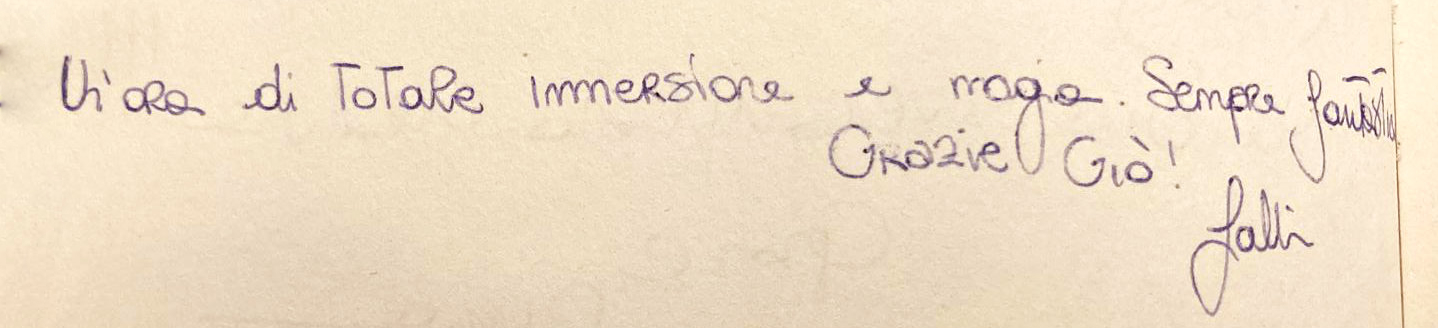 Un'ora di totale immersione e magia. Sempre fantastica
Grazie Giò!